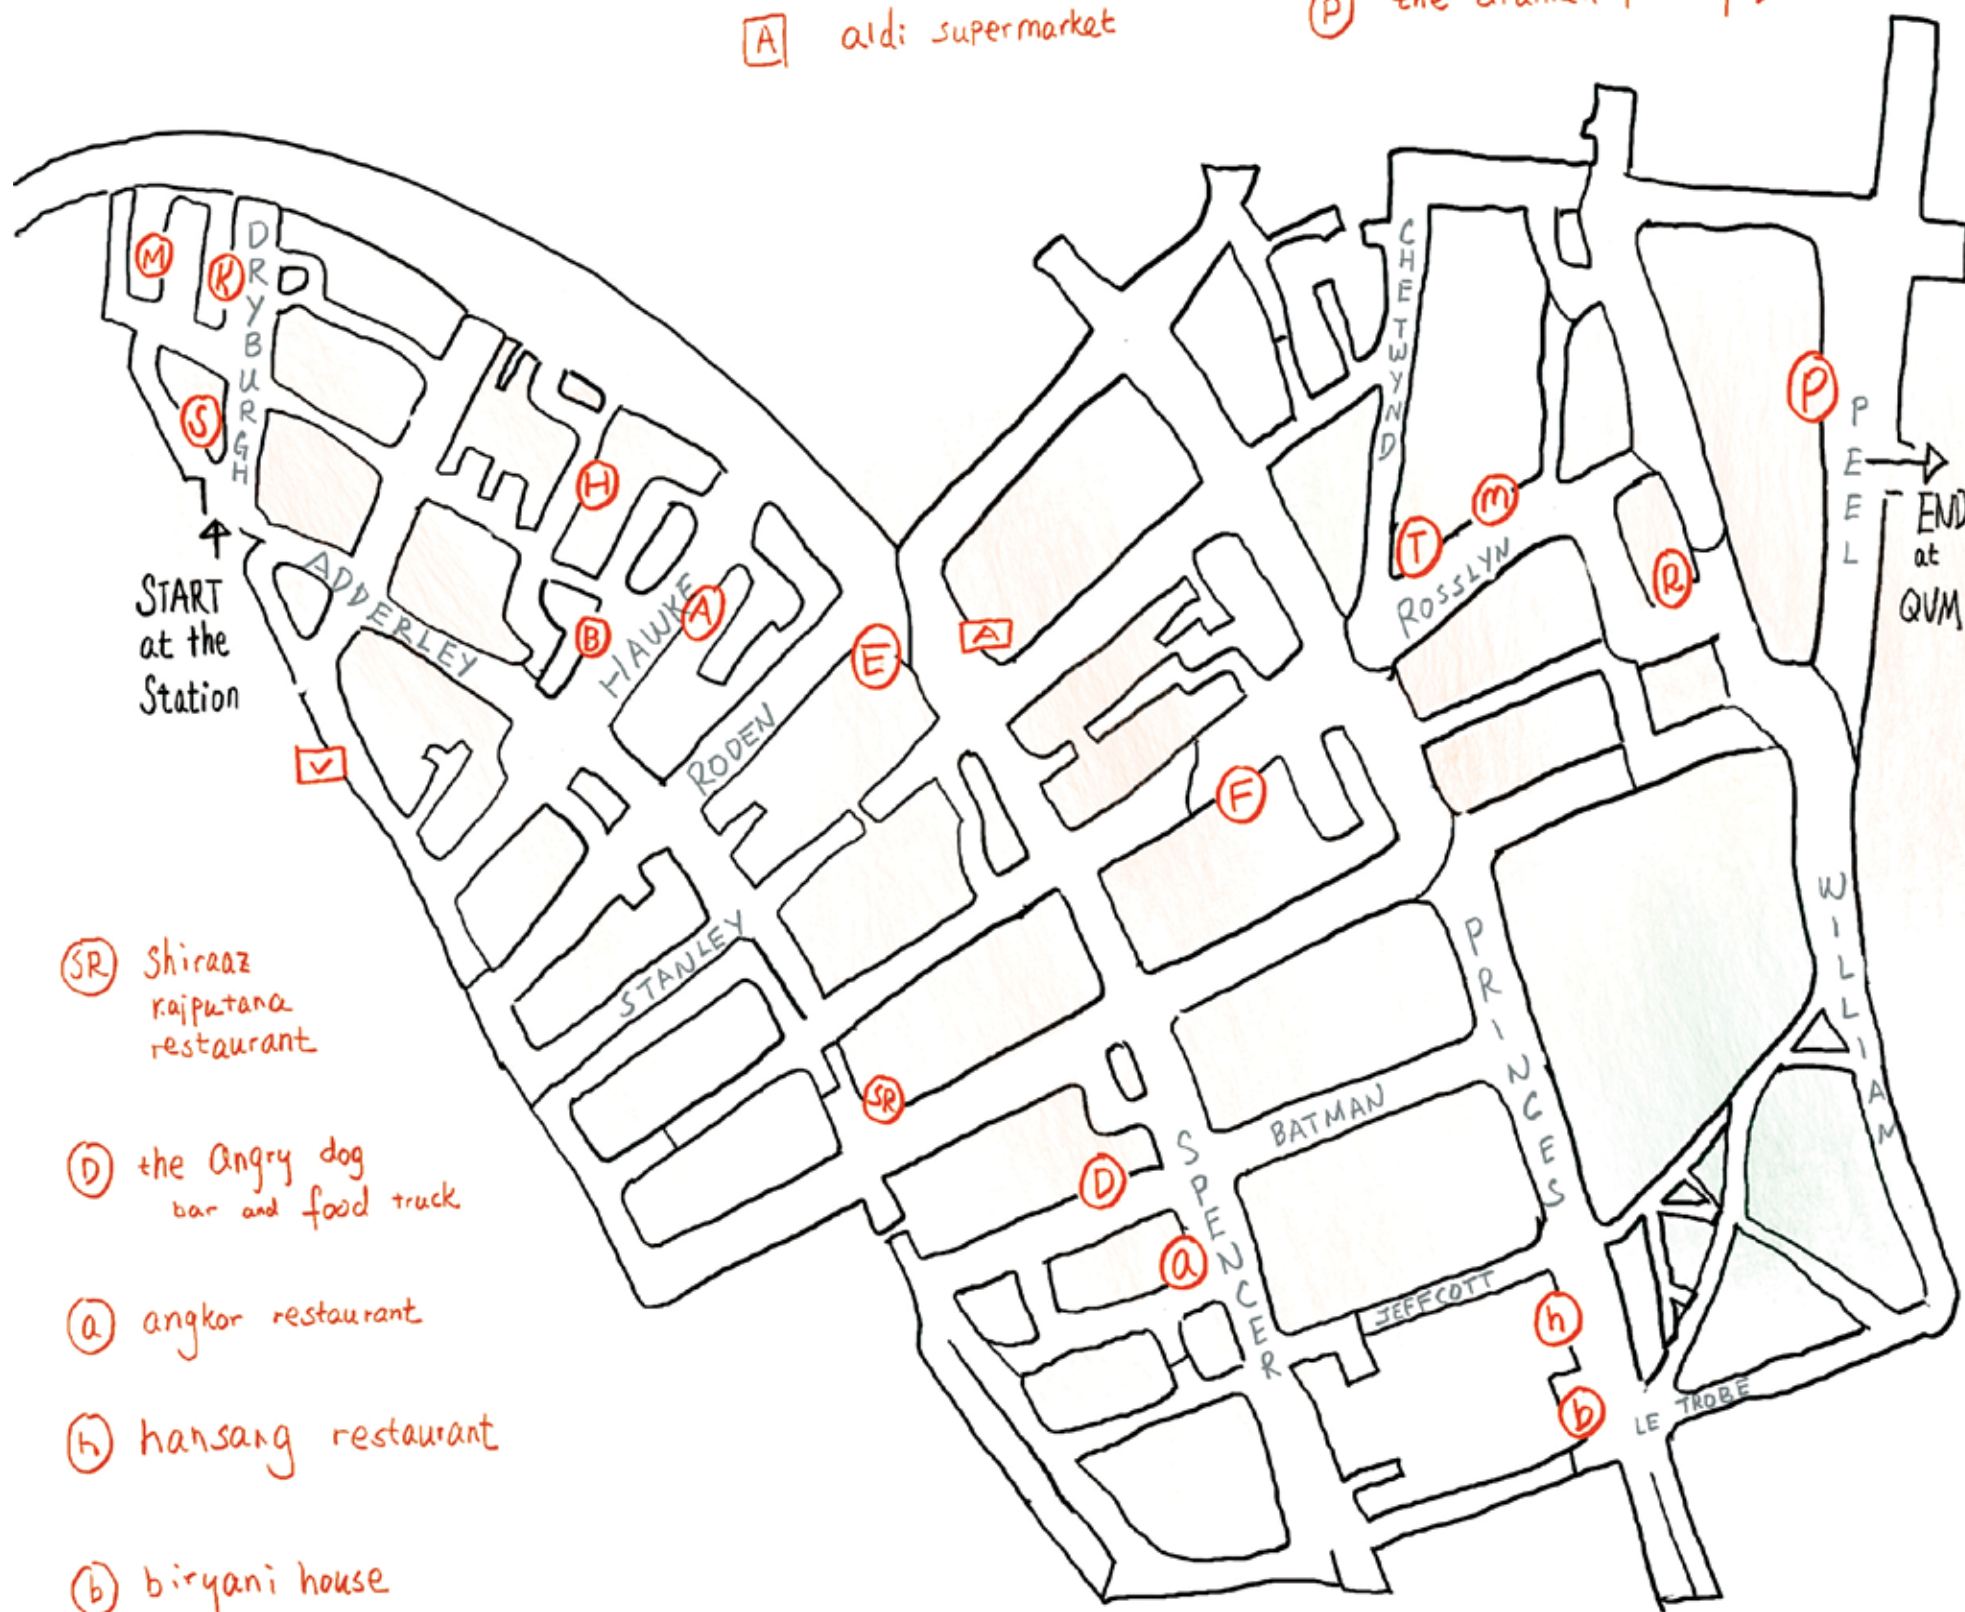 A aldi supermarket
P the
M
K
DRYBURGH
S
START
at the
Station
ADDERLEY
V
H
B
HAWKE
A
RODEN
E
A
STANLEY
CHETWYND
T
m
ROSSLYN
R
P
PEEL
END
at
QVM
F
WILLIAM
PRINCES
SR
BATMAN
SPENCER
D
a
JEFFCOTT
h
b
LE TROBE
SR shiraaz
rajputana
restaurant
D the angry dog
bar and food truck
a angkor restaurant
h hansang restaurant
b biryani house